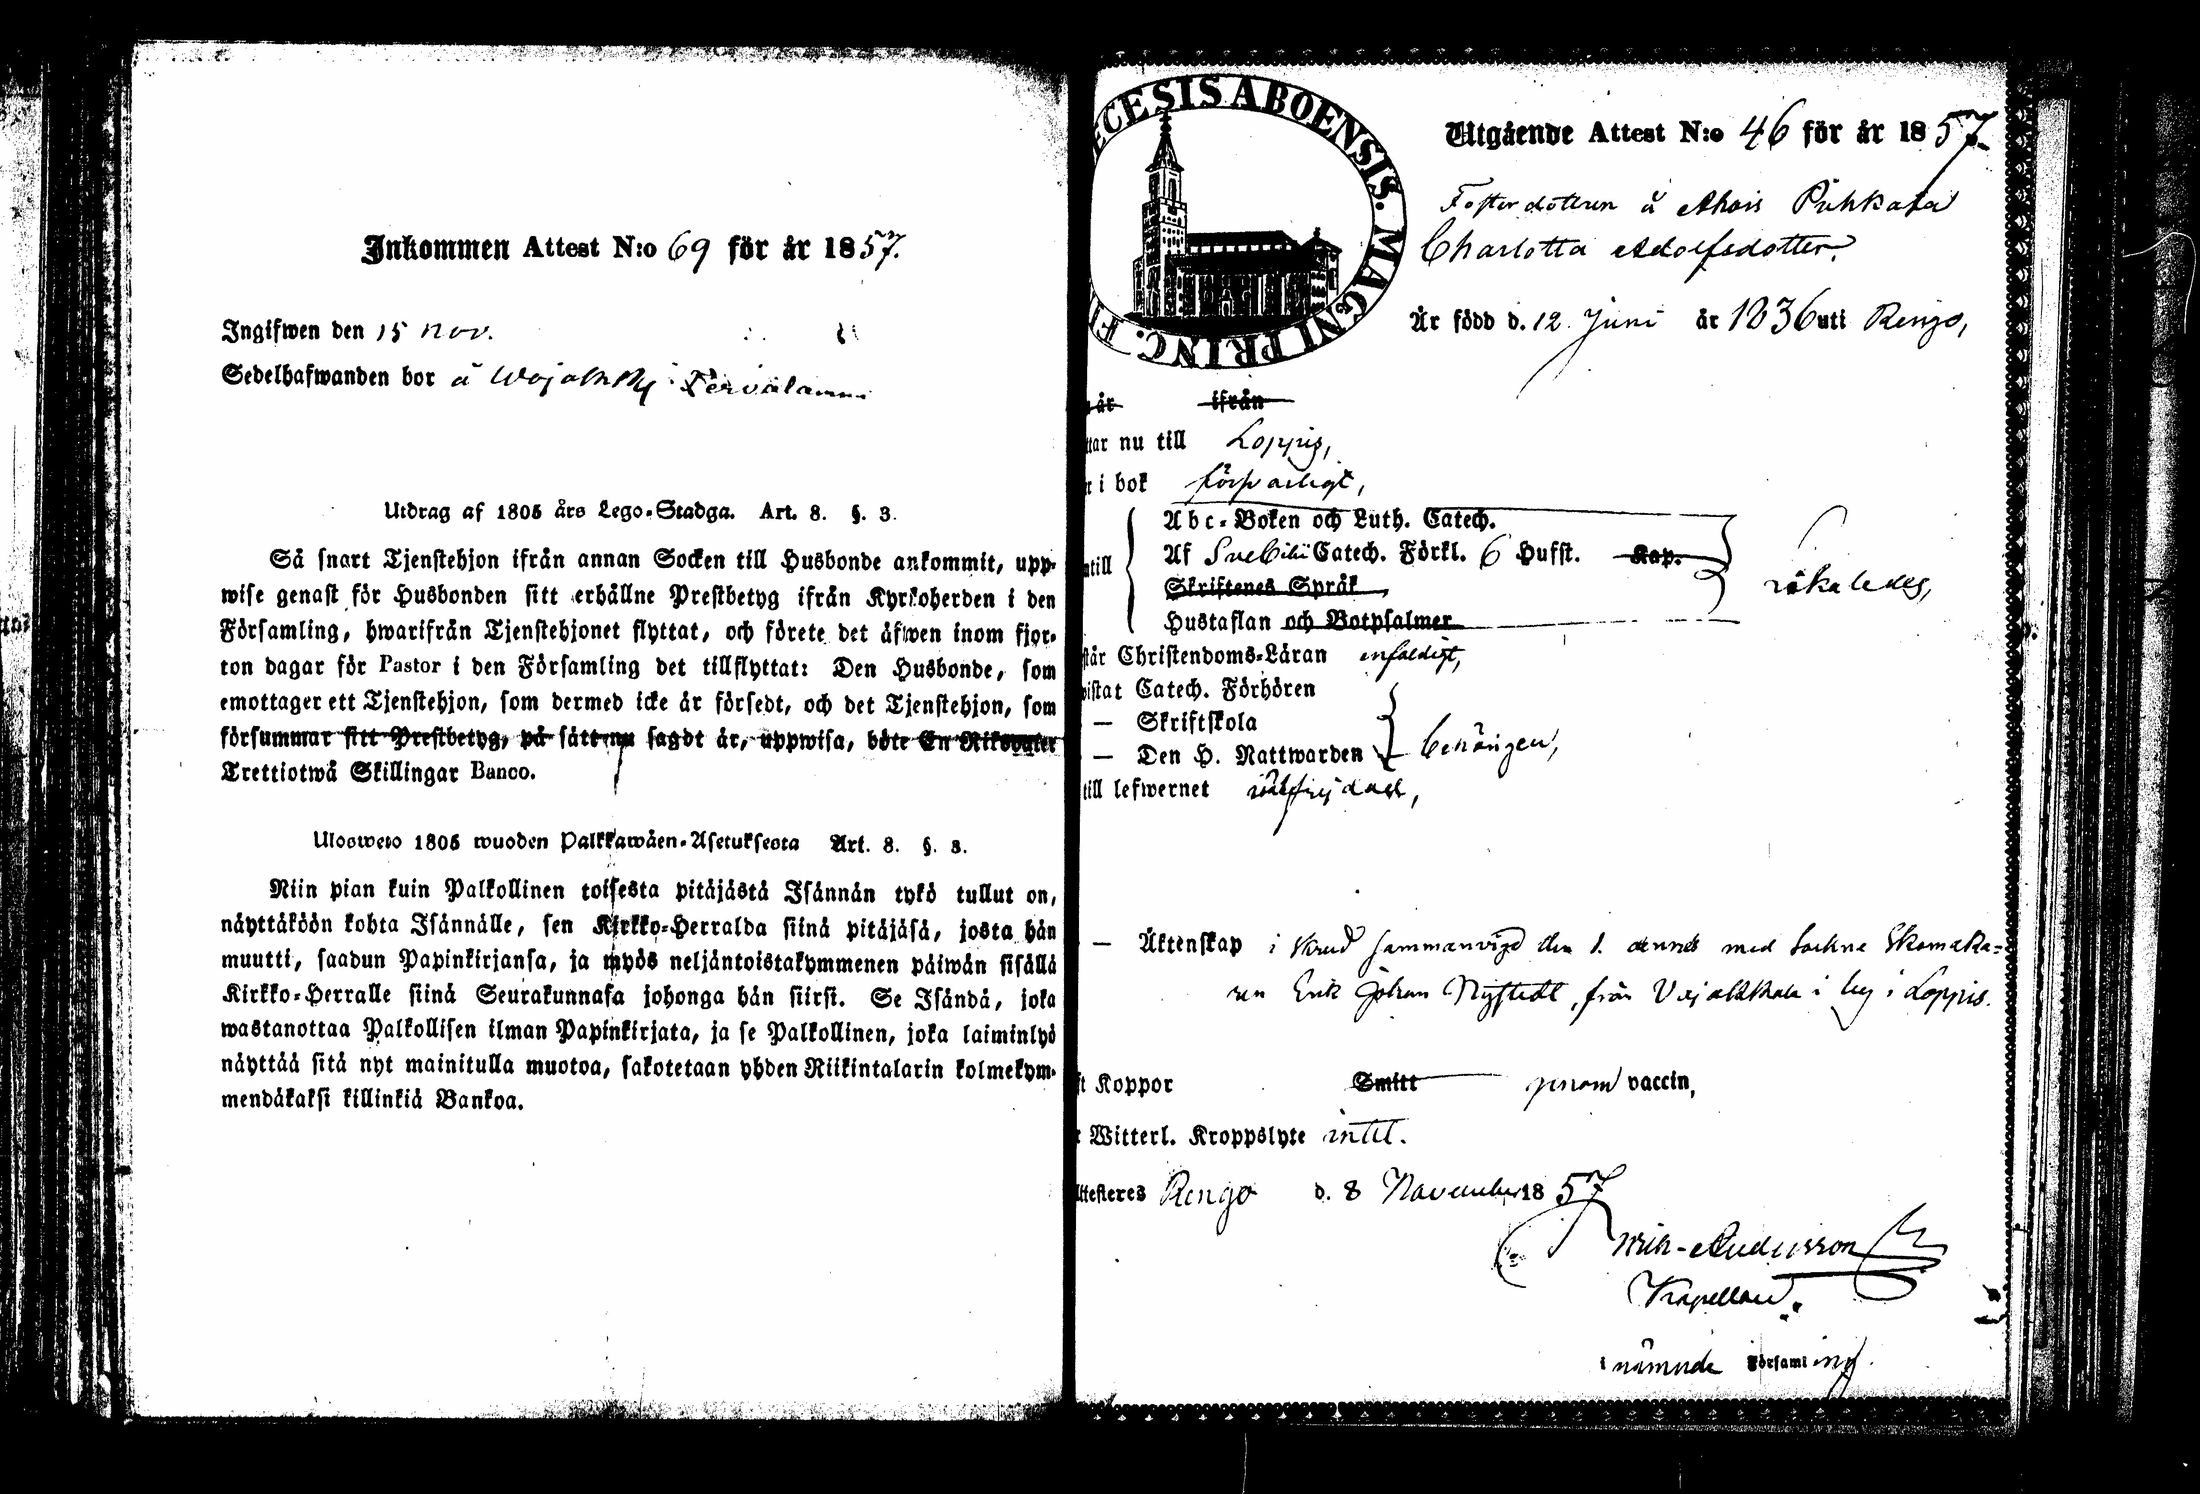 Inkommen Attest N:o 69 för år 1857.
Ingifwen den 15 nov.
Sedelhafwanden bor å Wojakkby Tervalammi
Utdrag af 1805 års Lego-Stadga. Art. 8. §. 3.
Så snart Tjenstehjon ifrån annan Socken till Husbonde ankommit, upp-
wise genast för Husbonden sitt erhållne Prestbetyg ifrån Kyrkoherden i den
Församling, hwarifrån Tjenstehjonet flyttat, och förete det äfwen inom fjor-
ton dagar för Pastor i den Församling det tillflyttat: Den Husbonde, som
emottager ett Tjenstehjon, som dermed icke är försedt, och det Tjenstehjon, som
försummar sitt Prestbetyg, på sätt nu sagdt är, uppwisa, böte En Riksdaler
Trettiotwå Skillingar Banco.
Ulosweto 1805 wuoden Palkkawäen-Asetuksesta Art. 8. §. 3.
Niin pian kuin Palkollinen toisesta pitäjästä Isännän tykö tullut on,
näyttäköön kohta Isännälle, sen Kirkko-Herralda siinä pitäjäsä, josta hän
muutti, saadun Papinkirjansa, ja myös neljäntoistakymmenen päiwän sisällä
Kirkko-Herralle siinä Seurakunnasa johonga hän siirsi. Se Isändä, joka
wastanottaa Palkollisen ilman Papinkirjata, ja se Palkollinen, joka laiminlyö
näyttää sitä nyt mainitulla muotoa, sakotetaan yhden Riikintalarin kolmekym-
mendäkaksi killinkiä Bankoa.
ECESIS ABOENSIS. MAGNI PRINC. FI
Utgående Attest N:o 46 för år 1857.
Fosterdottren å Ahois Pihkala
Charlotta Adolfsdotter,
Är född d. 12 Juni år 1836 uti Rengo,
år ifrån
ttar nu till Loppis,
i bok försvarligt,
Abc-Boken och Luth. Catech.
ntill Af Svebilii Catech. Förkl. 6 Hufst. Kap.
Skriftenes Språk
Hustaflan och Botpsalmer
likaledes,
står Christendoms-Läran enfaldigt,
wistat Catech. Förhören
— Skriftskola
— Den H. Nattwarden behörigen,
till lefwernet oförvitlig
— Äktenskap i Skrud sammanvigd den 1. dennes med Sockne Skomaka-
ren Erik Johan Nystedt, från Vojakkala by i Loppis.
ft Koppor Smitt genom vaccin,
Witterl. Kroppslyte intet.
Attesteres Rengo d. 8 November 1857
Andersson
Kapellan
i nämnde Församling.